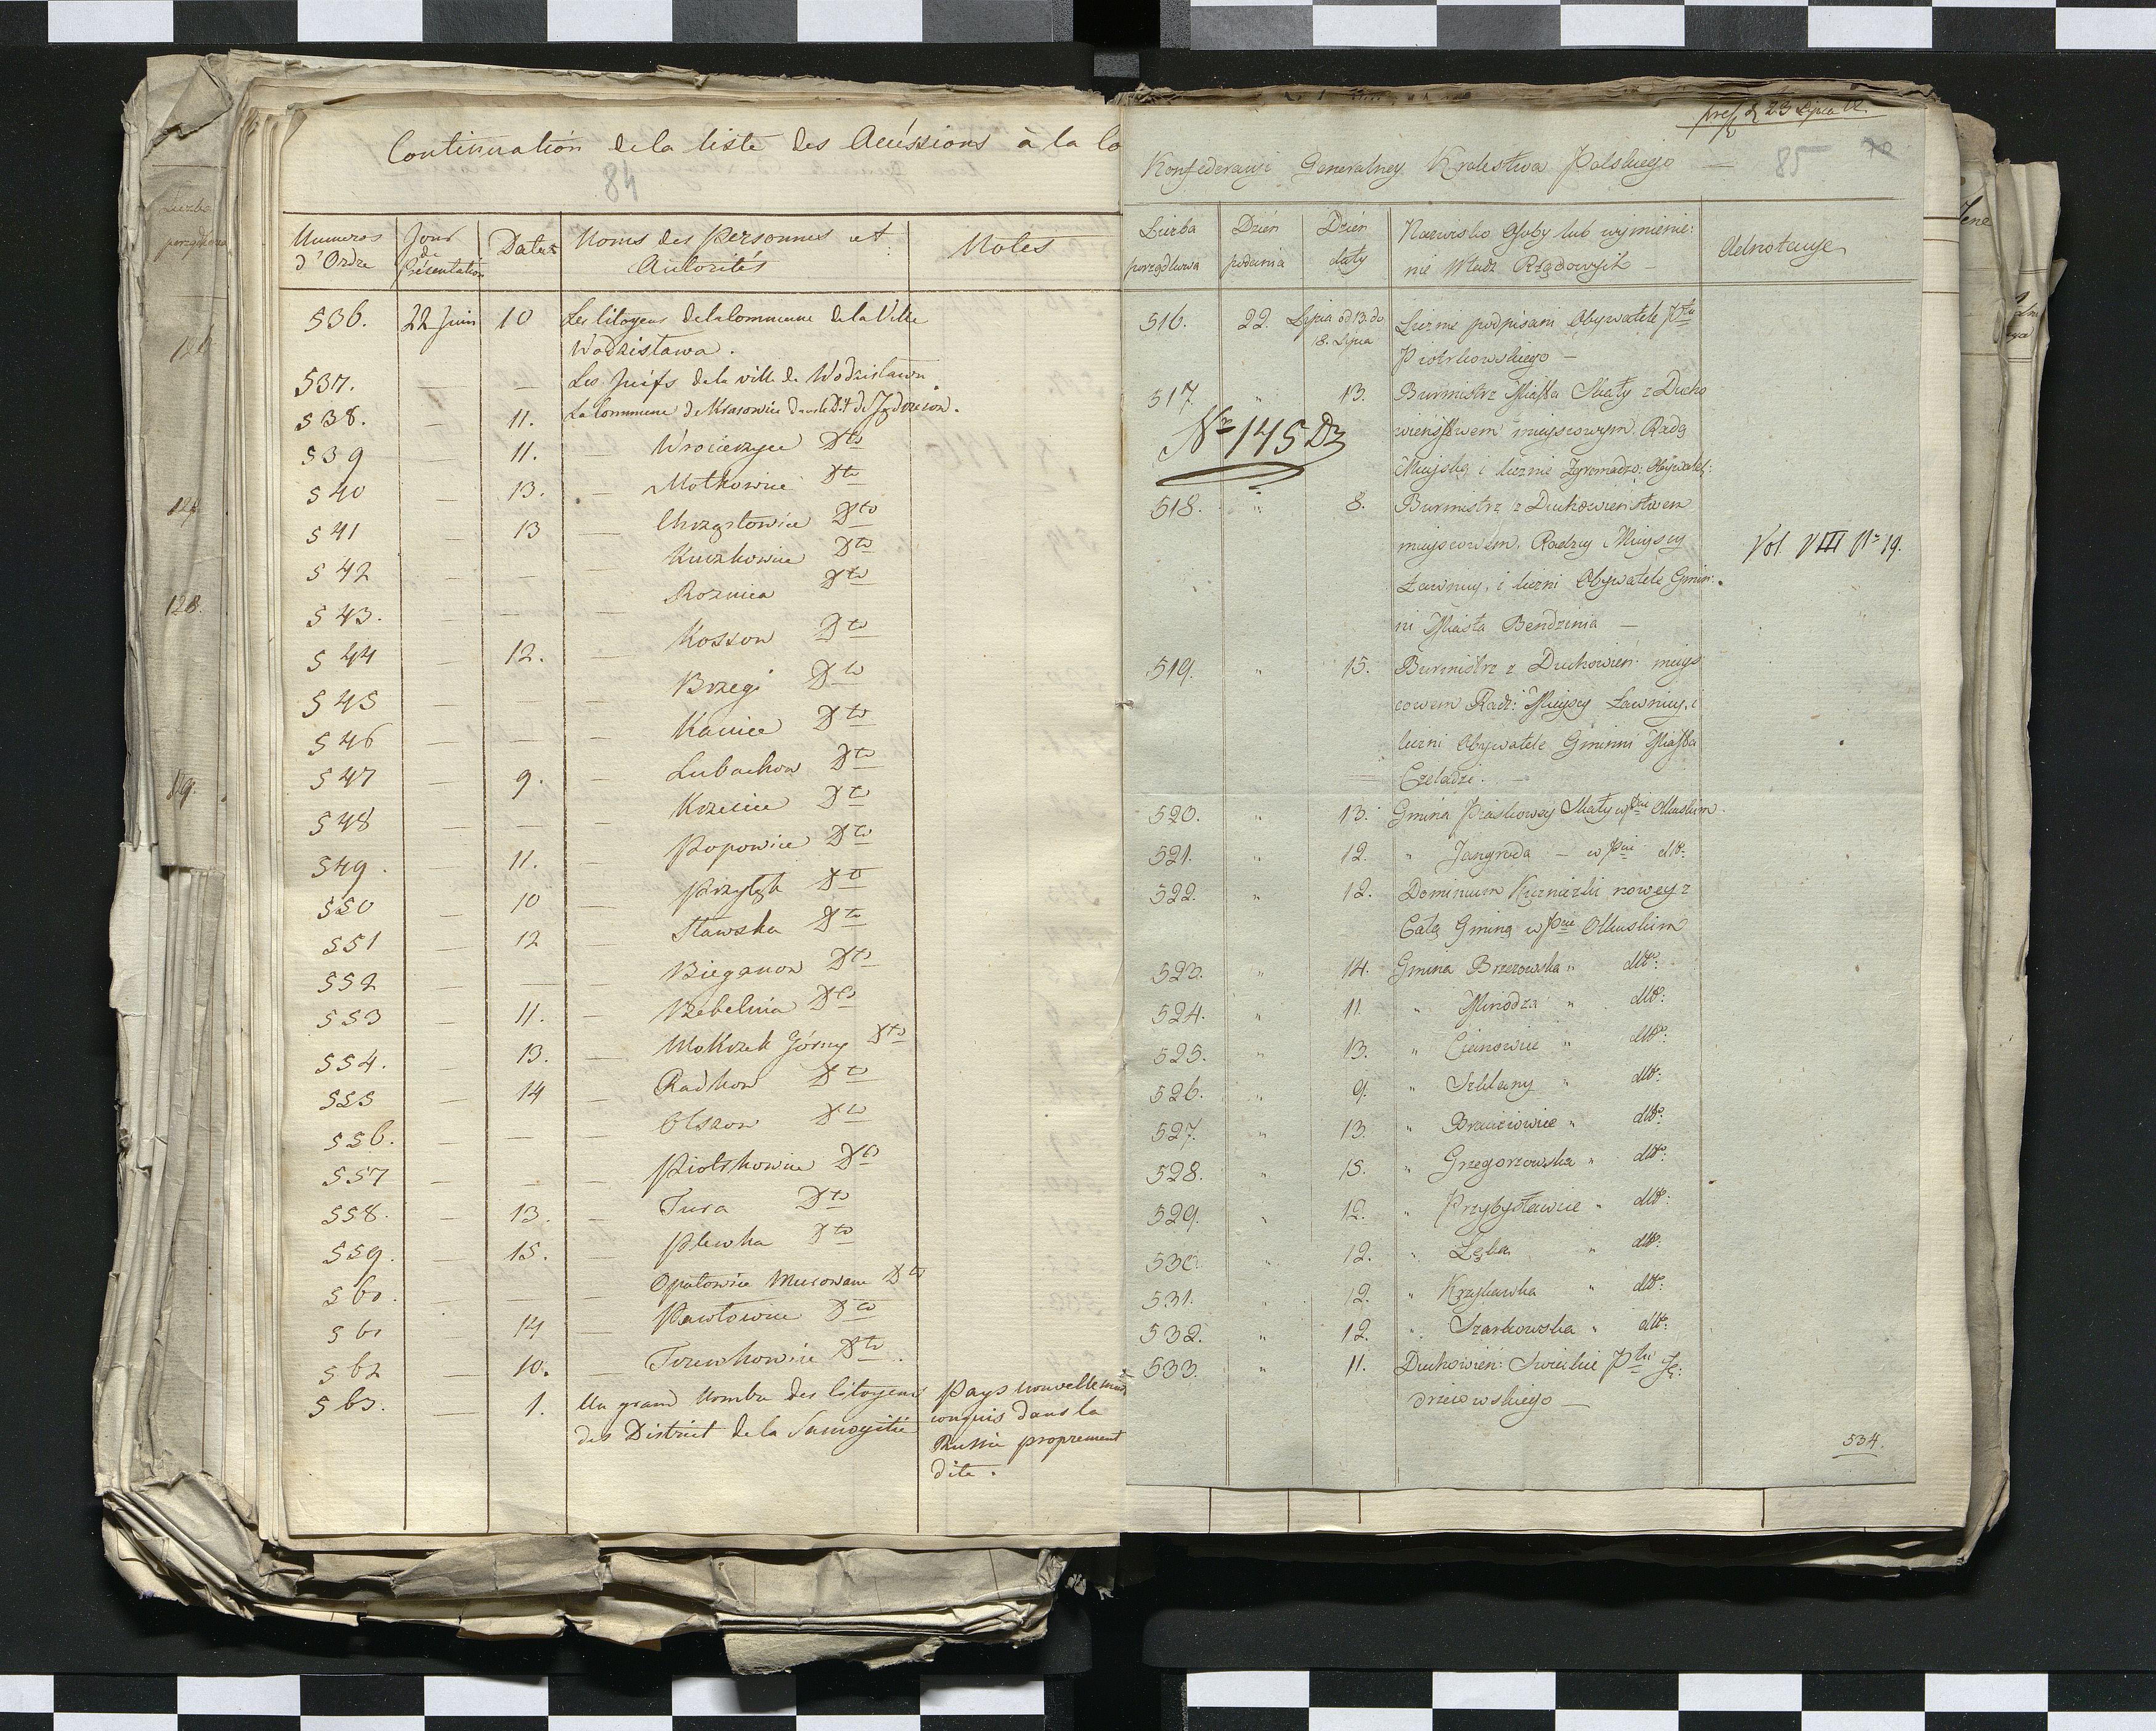 Continuation de la liste des Accéssions à la Co
84
Numeros d'Ordre
Jour de Présentation
Dates
Noms des Personnes et Autorités
Notes
536. 22 Juin 10 Les Citoyens de la Commune de la Ville
Wodzisława.
537. — — Les Juifs de la ville de Wodzisława.
538. — 11. La Commune de Krasowice dans le D.t de Jędrzeiow.
539 — 11. — Wrocierzyce Dto
540 — 13. — Motkowice Dto
541 — 13 — Chrząstowice Dto
542 — — — Kuczkowice Dto
543. — — — Roznica Dto
544 — 12. — Kossow Dto
545 — — — Brzegi Dto
546 — — — Kanice Dto
547 — 9. — Lubachow Dto
548 — — — Krzecice Dto
549. — 11. — Popowice Dto
550 — 10 — Przyłęk Dto
551 — 12 — Sławska Dto
552 — — — Bieganow Dto
553 — 11. — Rebelnia Dto
554. — 13. — Mokrzek Górny Dto
555 — 14 — Radkow Dto
556. — — — Olszow Dto
557 — — — Piotrkowice Dto
558. — 13. — Tura Dto
559. — 15. — Plewka Dto
560. — — — Opatowice Murowane Dto
561 — 14 — Pawłowice Dto
562 — 10. — Trzewkowice Dto.
563. — 1. Un grand Nombre des Citoyens
des District de la Samogitie
Pays nouvellement
conquis dans la
Russie proprement
dite.
pres. d 23 Lipca
Konfederacyi Generalney Krolestwa Polskiego —
85
70
Liczba porządkowa
Dzień podania
Dzień daty
Nazwisko Osoby lub wymienie:
nie Władz Rządowych —
Adnotacye
516. 22. Lipca od 13. do 18. Lipca Licznie podpisani Obywatele Ptu
Piotrkowskiego —
517 " 13. Burmistrz Miasta Skały z Ducho
wieństwem mieyscowym Radą
Nr 145 Dz
Mieyską i licznie Zgromadzo: Obywatel:
518. " 8. Burmistrz z Duchowieństwem
mieyscowem, Radzcy Mieyscy
Ławnicy, i liczni Obywatele Gmin:
ni Miasta Bendzinia —
Vol. VIII Nr 19.
519. " 15. Burmistrz z Duchowień: mieys
cowem Radz: Mieyscy Ławnicy, i
liczni Obywatele Gminni Miasta
Czeladzi. —
520. " 13. Gmina Piaskowey Skały w Pcie Olkuskim.
521. " 12. " Jangroda — w Pcie dtto:
522. " 12. Dominium Kuzniczki nowey z
Całą Gminą w Pcie Olkuskim
523. " 14. Gmina Brzozowska " dtto:
524. " 11. " Minodza " dtto:
525. " 13. " Cianowice " dtto:
526. " 9. " Szklany " dtto:
527. " 13. " Braciejowice " dtto:
528. " 15. " Grzegorzowska " dtto:
529. " 12. " Przybysławice " dtto:
530. " 12. " Zęba " dtto:
531. " 12. " Krzykawka " dtto:
532. " 12. " Szarkowska " dtto:
533. " 11. Duchowień: Swieckie Ptu Ję:
drzeiowskiego —
534.